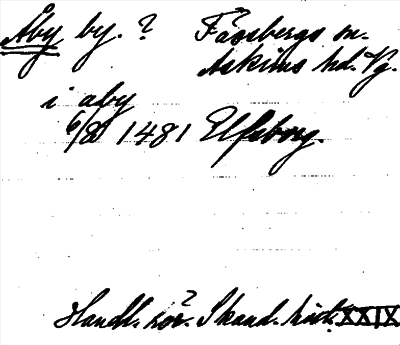 Åby by. ? Fässbergs sn.
Askims hd. Vg.
i aby
6/8 1481 Elfsborg.
Handl. rör. ? Skand. hist. XXIX